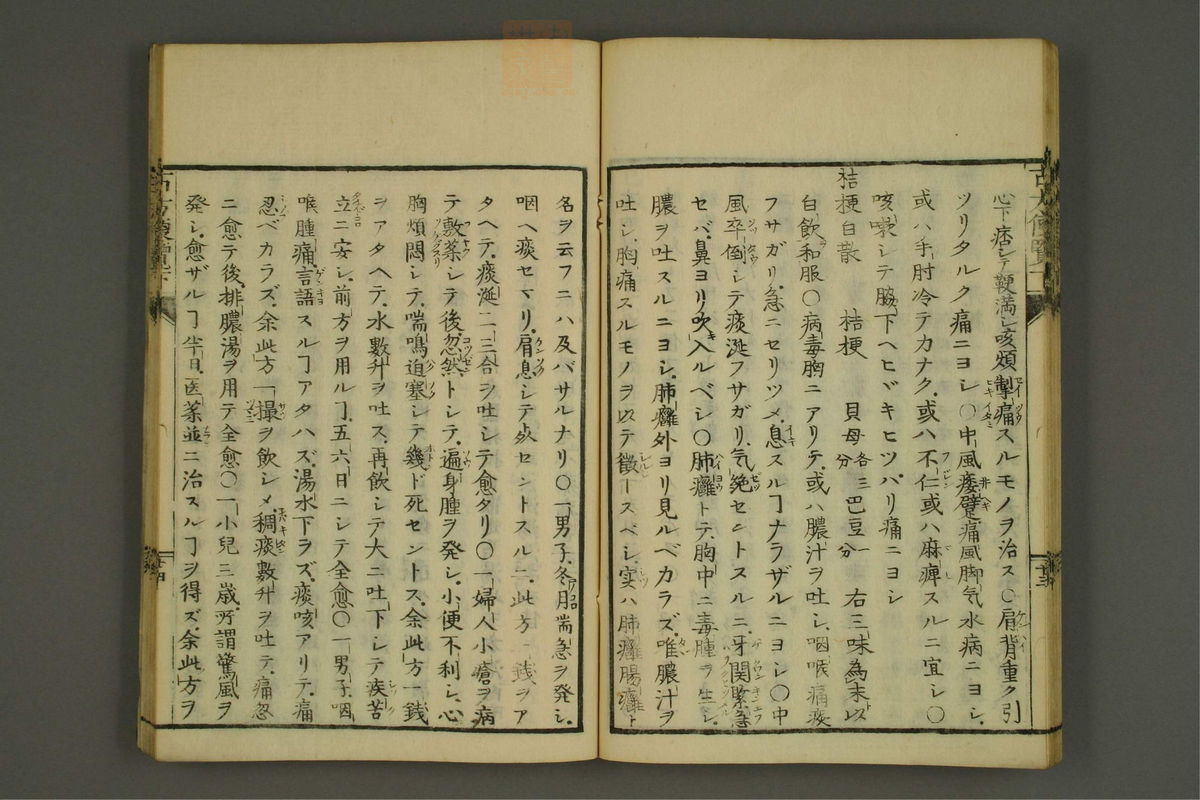 心下痞シテ鞕満シ咳煩掣痛スルモノヲ治ス〇肩背重ク引
ツリタルク痛ニヨシ〇中風痿躄痛風脚気水病ニヨシ
或ハ手肘冷テカナク或ハ不仁或ハ麻痺スルニ宜シ〇
咳嗽シテ脇下ヘヒヾキヒツパリ痛ニヨシ
桔梗白散 桔梗 貝母各三分 巴豆一分 右三味為末以
白飲和服〇病毒胸ニアリテ或ハ膿汁ヲ吐シ咽喉痛痰
フサガリ急ニセリツメ息スルヿナラザルニヨシ〇中
風卒倒シテ痰涎フサガリ気絶セントスルニ牙関緊急
セバ鼻ヨリ吹入ルベシ〇肺癰トテ胸中ニ毒腫ヲ生シ
膿ヲ吐スルニヨシ肺癰外ヨリ見ルベカラズ唯膿汁ヲ
吐シ胸痛スルモノヲ以テ徴トスベシ実ハ肺癰腸癰ト
名ヲ云フニハ及バサルナリ〇一男子冬月喘急ヲ発シ
咽ヘ痰セマリ肩息シテ死セントスルニ此方一銭ヲア
タヘテ痰涎二三合ヲ吐シテ愈タリ〇一婦人小瘡ヲ病
テ敷薬シテ後忽然トシテ遍身腫ヲ発シ小便不利シ心
胸煩悶シテ喘鳴迫塞シテ幾ド死セントス余此方一銭
ヲアタヘテ水數升ヲ吐ス再飲シテ大ニ吐下シテ疾苦
立ニ安シ前方ヲ用ルヿ五六日ニシテ全愈〇一男子咽
喉腫痛言語スルヿアタハズ湯水下ラズ痰咳アリテ痛
忍ベカラズ余此方一撮ヲ飲シメ稠痰數升ヲ吐テ痛忽
ニ愈テ後排膿湯ヲ用テ全愈〇一小兒三歳所謂驚風ヲ
発シ愈ザルヿ半日医薬並ニ治スルヿヲ得ズ余此方ヲ